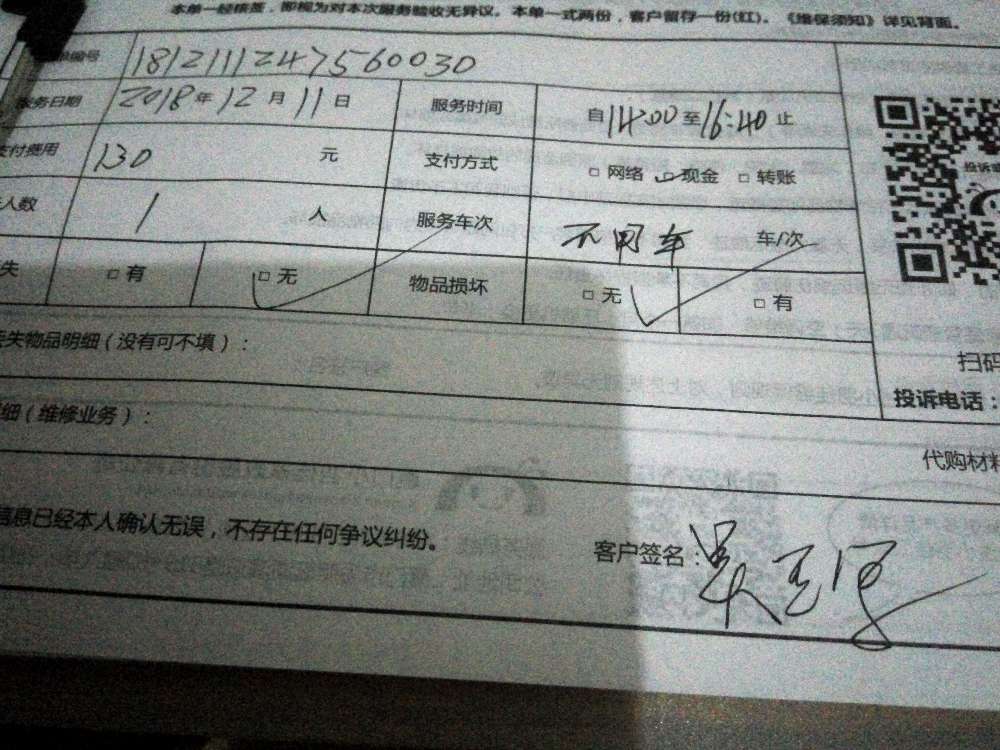 本单一经核签，即视为对本次服务验收无异议。本单一式两份，客户留存一份(红)。《维保须知》详见背面。
单编号 1812111247560030
服务日期 2018年12月11日 服务时间 自14:00至16:40止
支付费用 130 元 支付方式 □网络 □现金 □转账
人数 1 人 服务车次 不用车 车/次
失 □有 □无 物品损坏 □无 □有
投诉
扫码
丢失物品明细(没有可不填)：
投诉电话：
细(维修业务)：
代购材料
信息已经本人确认无误，不存在任何争议纠纷。
客户签名：吴